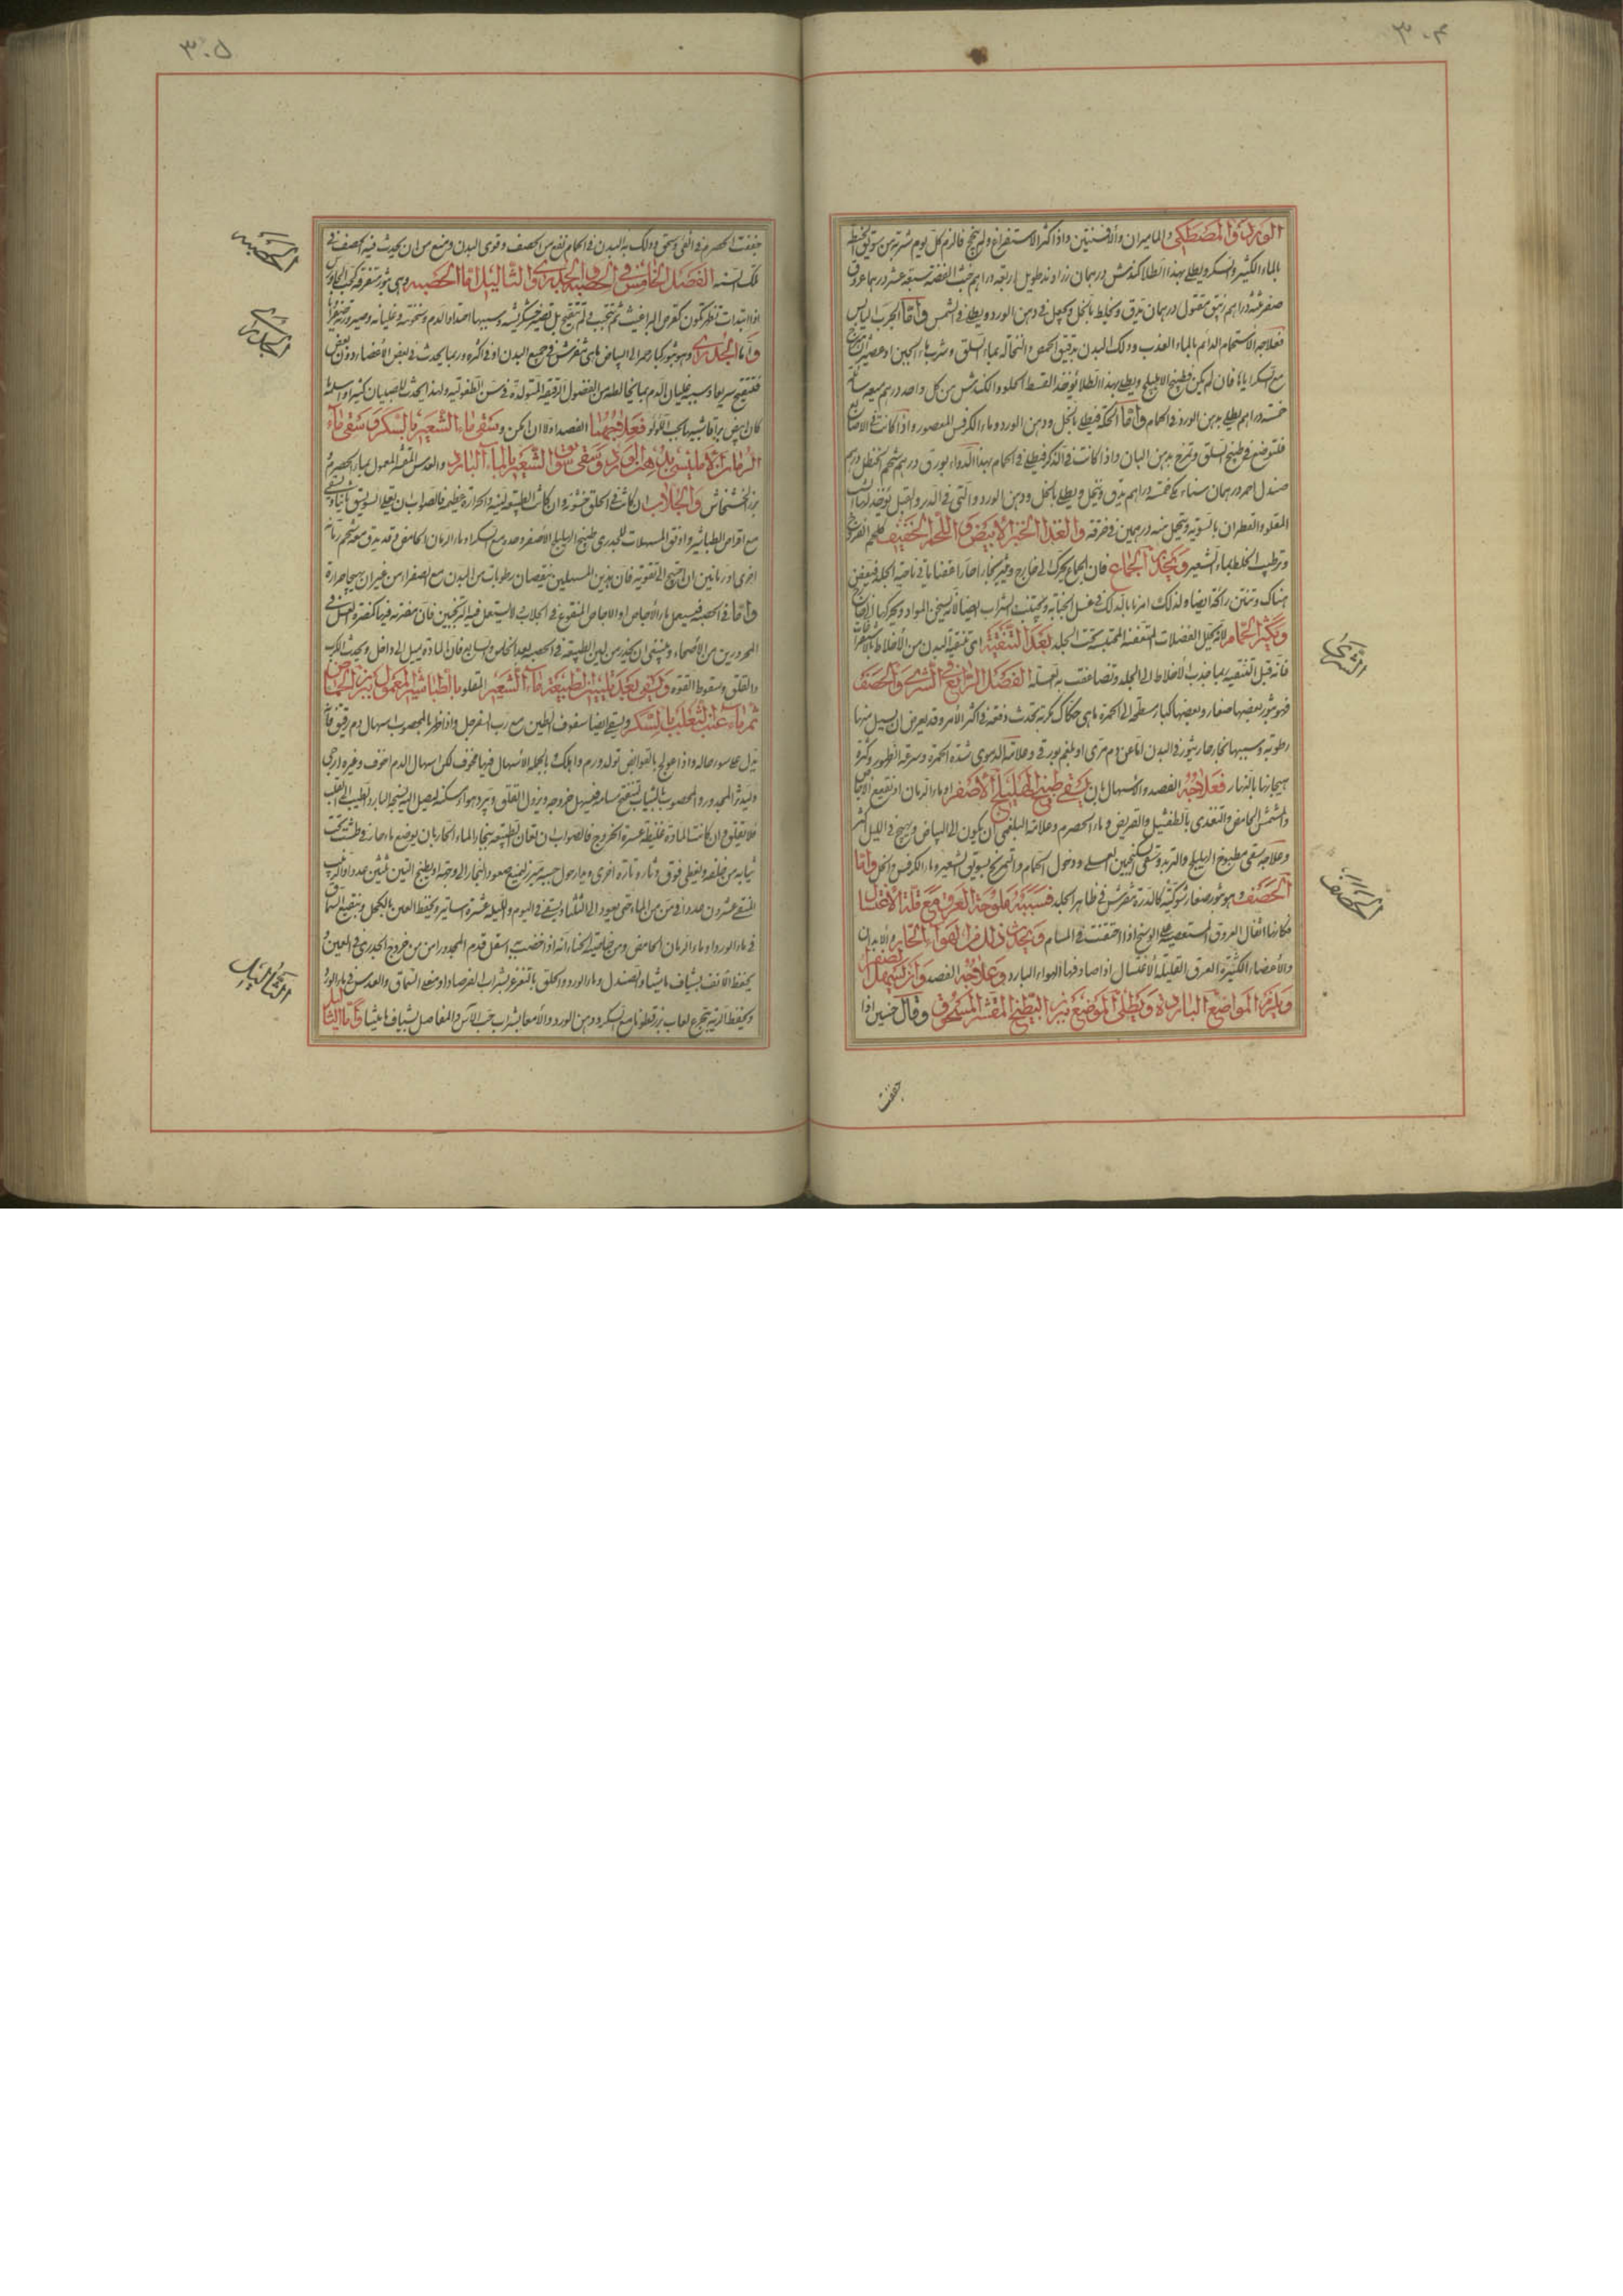 ٣٠٤
الورد والمصطكى والماميران والافسنتين واذا كثر الاستفراغ ولم ينجح فالزم كل يوم شربة من سويق الحنطة
بالماء الكثير والسكر ويطلى بهذا الطلا كندش درهمان زراوند طويل اربعة دراهم خبث الفضة سبعة عشر درهما عروق
صفر عشرة دراهم زيبق مقتول درهمان يدق ويخلط بالخل ويجعل فى دهن الورد ويطلى فى الشمس واما الجرب اليابس
فعلاجه الاستحمام الدائم بالماء العذب ودلك البدن بدقيق الحمص والنخالة بماء السلق وشرب ماء الجبن
مع السكر اياما فان لم يكن فطبيخ الاهليلج ويطلى بهذا الطلا يؤخذ القسط الحلو والكندش من كل واحد درهم ميعة سائلة
خمسة دراهم يطلى بدهن الورد فى الحمام واما الحكة فيطلى بالخل ودهن الورد وماء الكرفس المعصور واذا كانت فى الاصابع
فلتوضع فى طبيخ السلق وتمرخ بدهن البان واذا كانت فى الذكر فيطلى فى الحمام بهذا الدواء بورق درهم شحم الحنظل درهم
صندل احمر درهمان سناء مكى خمسة دراهم يدق وينخل ويطلى بالخل ودهن الورد والتى فى الدبر والقبل يؤخذ لها
المقلو والقطران بالسوية ويتحمل منه درهمين فى خرقة والغذا الخبز الابيض واللحم الخفيف كلحم الفروج
وترطيب الخلط بماء الشعير ويحذر الجماع فان الجماع يحرك الى خارج ويثير بخارا حارا عفنا ياتى ناحية الجلد فيعفن
هناك وتنتن رائحة ايضا ولذلك امرنا بالدلك فى غسل الجنابة ويجتنب الشراب ايضا لانه يسخن المواد ويحركها
ويكثر الحمام لانه يحلل الفضلات المتعفنة المحتبسة تحت الجلد بعد التنقية اى تنقية البدن من الاخلاط
فانه قبل التنقية ربما جذب الاخلاط الى الجلد وتضاعفت به العلة الفصل الرابع فى الشرى والحصف
فهو بثور بعضها صغار وبعضها كبار مسطحة الى الحمرة ما هى حكاك مكربة تحدث دفعة فى اكثر الامر وقد يعرض ان يسيل منها
رطوبة وسببها بخار حار يثور فى البدن اما عن دم مرى او بلغم بورقى وعلامة الدموى شدة الحمرة وسرعة الظهور وكثرة
هيجانها بالنهار فعلاجه الفصد والاسهال بان يسقى طبيخ الهليلج الاصفر او ماء الرمان او نقيع الاجاص
والمشمش الحامض والتغذى بالطفشيل والقريض وماء الحصرم وعلامة البلغمى ان يكون الى البياض ويهيج فى الليل اكثر
وعلاجه سقى مطبوخ الهليلج والتربد وتسقى سكنجبين العسلى ودخول الحمام والتمريخ بسويق الشعير وماء الكرفس والخل واما
الحصف وهو بثور صغار شوكية كالذرة تتفرش فى ظاهر الجلد فسببه ملوحة العرق مع قلة الاغتسال
فكانها اثفال العروق المستعصية على الوسخ اذا احتقنت فى المسام ويحدث ذلك من الهواء الحار والابدان
والاعضاء الكثيرة العرق القليلة الاغتسال اذا صادفها الهواء البارد وعلاجه الفصد وان يسهل الصفراء
ويلزم المواضع الباردة ويطلى الموضع ببزر البطيخ المقشر المسحوق وقال حنين اذا
جففت
الشرى
الحصف
٣٠٥
جففت الحصرم فى الفئ وسحق ودلك به البدن فى الحمام نفع من الحصف وقوى البدن ومنع من ان يحدث فيه الحصف فى
تلك السنة الفصل الخامس فى الحصبة والجدرى والثآليل اما الحصبة وهى بثور متفرقة كحب الجاورس
اذا ابتدات تظهر تكون كقرص البراغيث ثم تتحبب ثم لم تتقيح بل تصير خشكريشة وسببها احتداد الدم وسخونته وغليانه وصيرورته صفراء
واما الجدرى وهو بثور كبار حمر الى البياض ما هى تتفرش فى جميع البدن او فى اكثره وربما يحدث فى بعض الاعضاء دون بعض
فتتقيح سريعا وسببه غليان الدم بما يخالطه من الفضول الرقيقة المتولدة فى سن الطفولية ولهذا يحدث للصبيان كثيرا واسلمه
كان ابيض براقا شبيها بحب اللؤلؤ فعلاجهما الفصد اولا ان امكن وسقى ماء الشعير بالسكر وسقى ماء
الرمان الامليسى بدهن الورد وسقى سويق الشعير بالماء البارد والعدس المقشر المعمول بماء الحصرم
بزر الخشخاش والجلاب ان كانت فى الحلق خشونة وان كانت الطبيعة لينة والحرارة عظيمة فالصواب ان يقلى السويق ثانيا ويسقى
مع اقراص الطباشير واوفق المسهلات للجدرى طبيخ الهليلج الاصفر وحده مع السكر او ماء الرمان الحامض قد يدق مع شحم رمانة
اخرى او رمانتين ان احتيج الى تقوية فان هذين المسهلين ينقصان رطوبات من البدن مع الصفراء من غير ان يهيجا حرارة
واما فى الحصبة فيسهل بماء الاجاص او الاجاص المنقوع فى الجلاب ولا يستعمل فيه الترنجبين فان مضرته فيها كمضرة العسل فى
المحرورين من الاصحاء وينبغى ان يحذر من لين الطبيعة فى الحصبة بعد الخامس والسابع فان المادة تميل الى داخل ويحدث الكرب
والقلق وسقوط القوة وليسق بعد تليين الطبيعة ماء الشعير المقلو بالطباشير المعمول ببزر الحماض
ثم ماء عنب الثعلب بالسكر ويسقى ايضا سفوف الطين مع رب السفرجل واذا ظهر بالمحصوب اسهال دم رقيق فانه
يدل على سوء حاله واذا عولج بالقوابض تولد ورم واهلك وبالجملة الاسهال فيها مخوف لكن اسهال الدم اخوف وغيره ارجى
وليدثر المجدور والمحصوب بالثياب لتنفتح مسامه فيسهل خروجه ويزول القلق ويبرد هواء مسكنه ليصل اليه النسيم البارد لطيب القلب
فلا يقلق وان كانت المادة غليظة عسرة الخروج فالصواب ان تعان الطبيعة ببخار الماء الحار بان يوضع ماء حار فى طشت تحت
ثيابه من خلفه ويغطى فوق دثاره وتارة اخرى ويدار حول جسمه ميزر ليمنع صعود البخار الى وجهه او يطبخ التين ثلثين عددا والزبيب
المنقى عشرون عددا فى من من الماء حتى يعود الى الثلث ويسقى فى اليوم والليلة عشرة اساتير ويحفظ العين بالكحل وبنقيع السماق
فى ماء الورد او ماء الرمان الحامض ومن خاصية الحناء انه اذا خضب به اسفل قدم المجدور امن من خروج الجدرى فى العين و
يحفظ الانف بشياف ماميثا والصندل وماء الورد والحلق بالتغرغر بشراب الفرصاد او مضغ السماق والعدس فى ماء الورد
ويحفظ الرية بتجرع لعاب بزر قطونا مع السكر ودهن الورد والامعا بشراب حب الآس والمفاصل بشياف ماميثا واما الثآليل
الحصبه
الجدرى
الثآليل